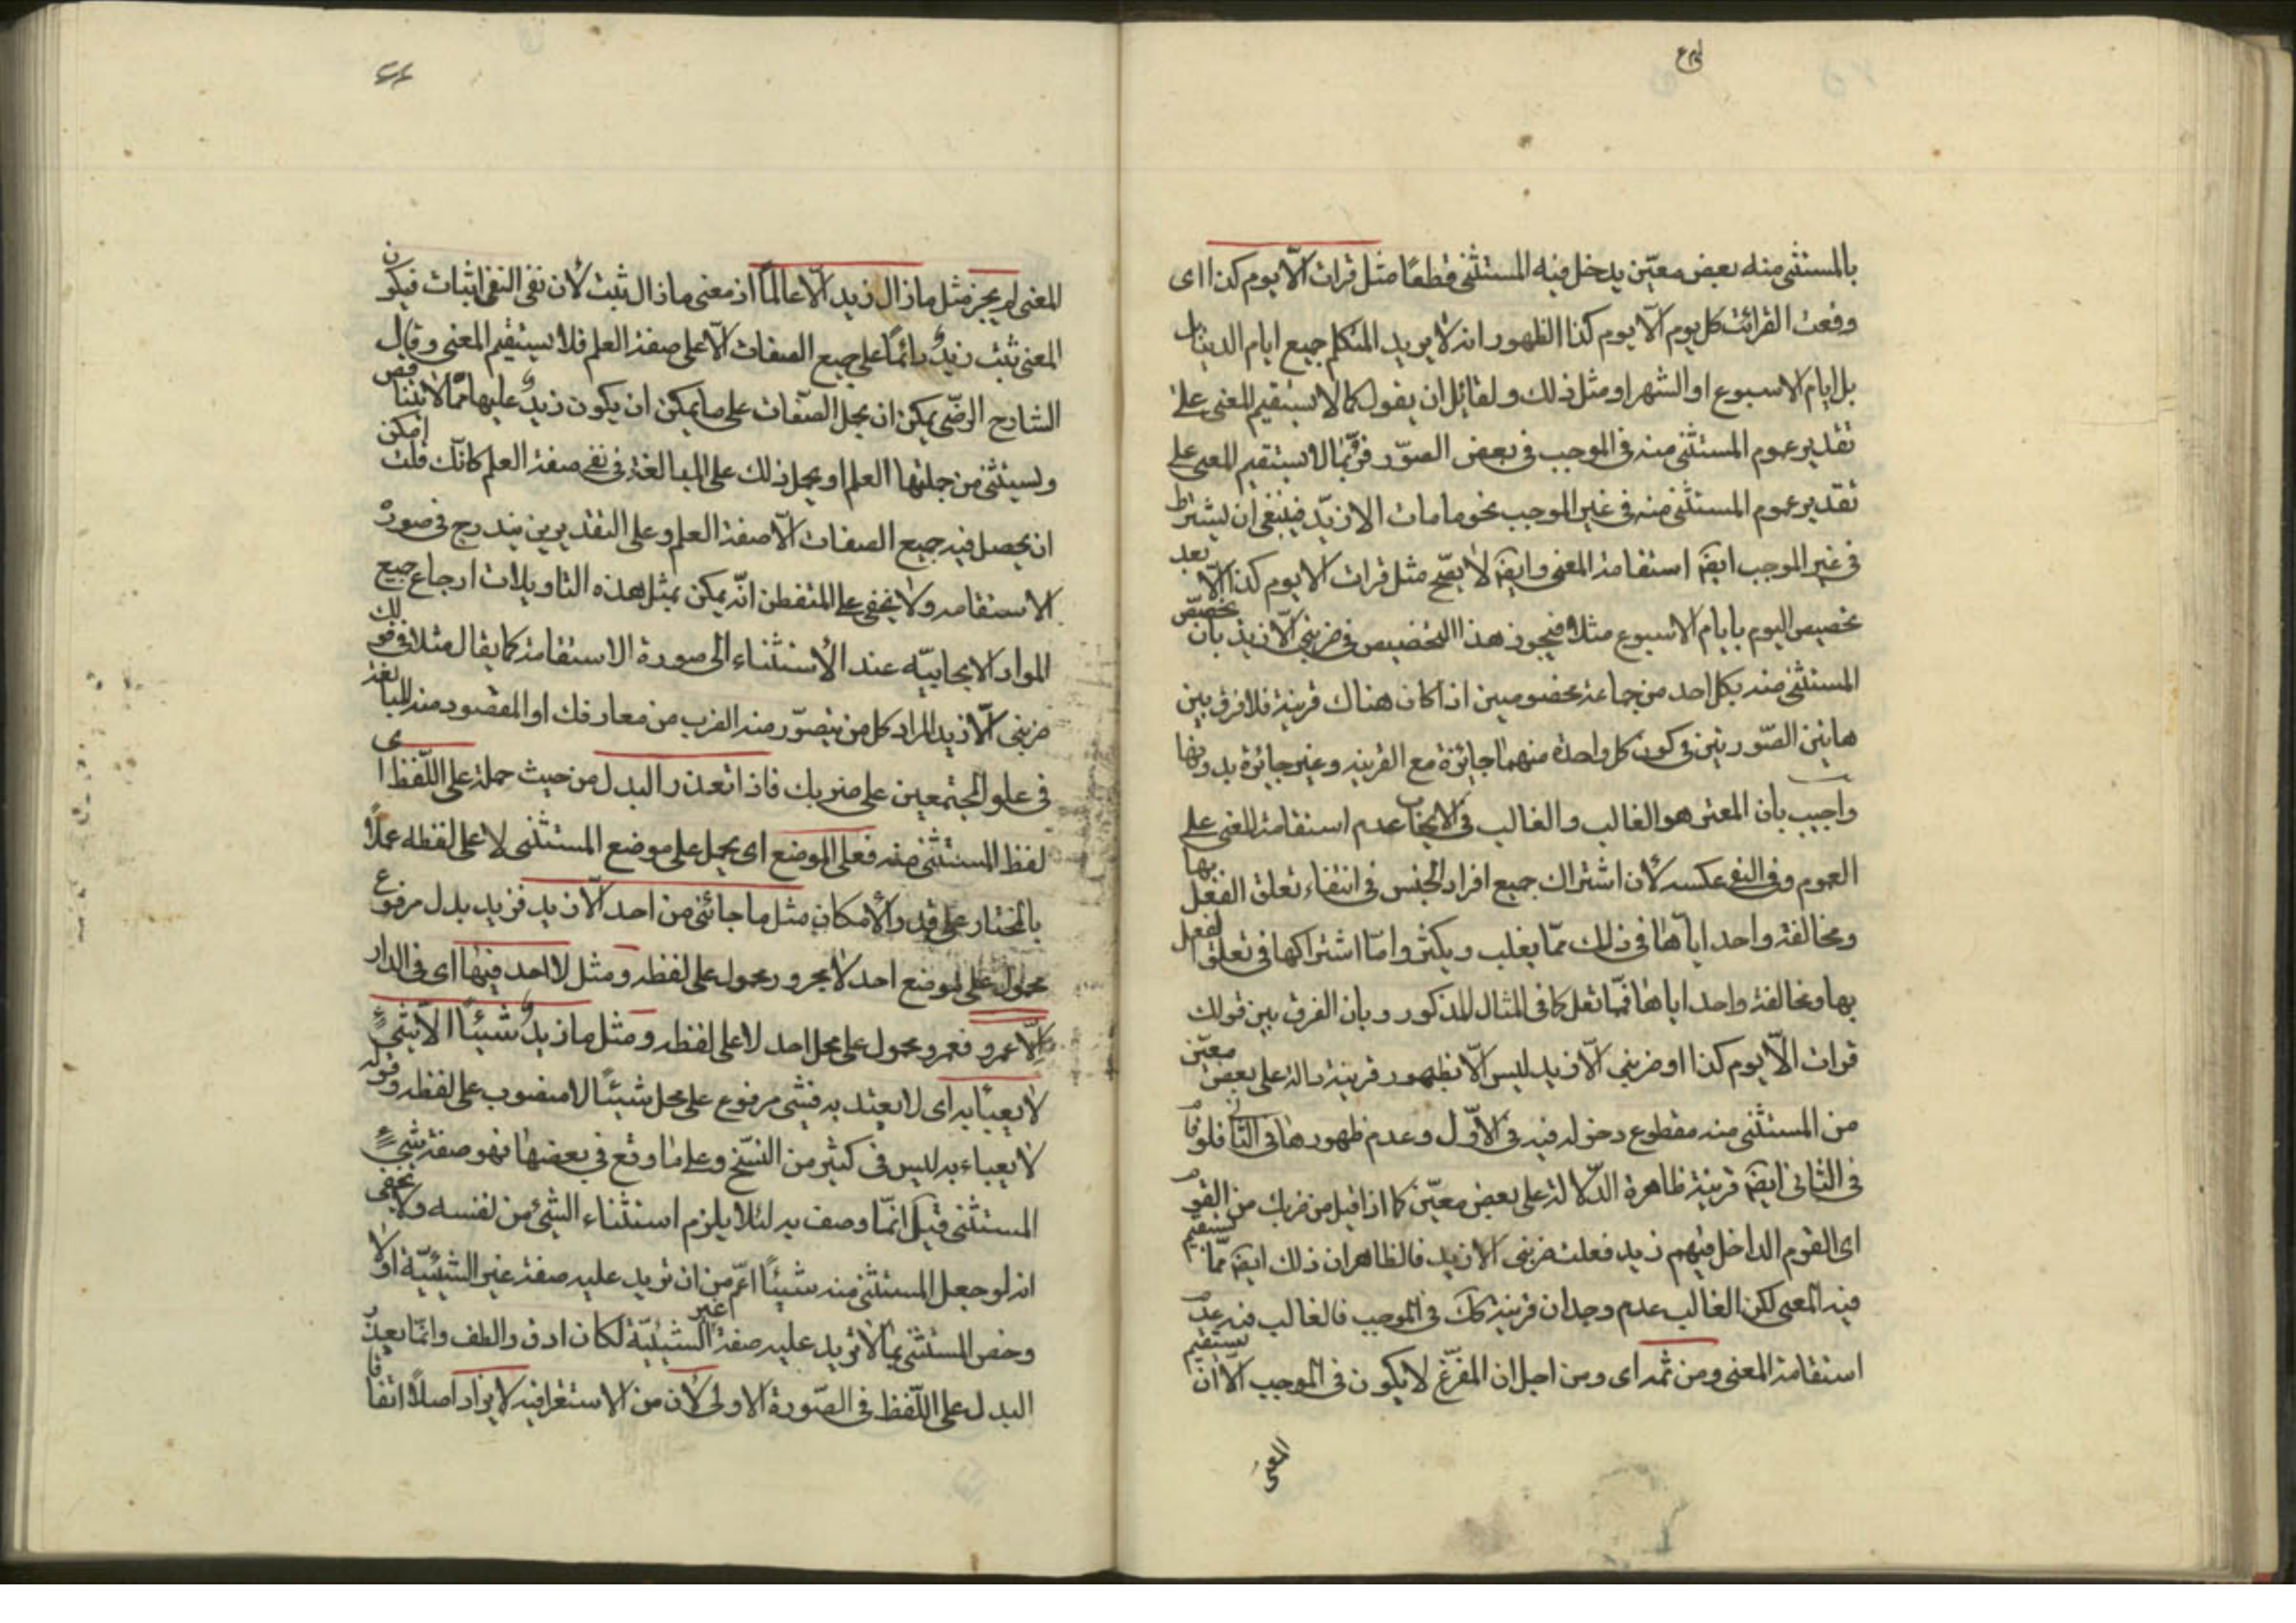 بالمستثنى منه بعض معيّن يدخل فيه المستثنى قطعًا مثل قرات الّا يوم كذا اى
وقعت القرائت كل يوم الّا يوم كذا الظهور انه لا يريد المتكلم جميع ايام الدنيا بل
بل ايام الاسبوع او الشهر او مثل ذلك ولقائل ان يقول كما لا يستقيم المعنى على
تقدير عموم المستثنى منه فى الموجب فى بعض الصوّر فربّما لا يستقيم المعنى على
تقدير عموم المستثنى منه فى غير الموجب نحو ما مات الا زيدٌ فينبغى ان يشترط
فى غير الموجب ايضا استقامة المعنى وايضا لا يصّح مثل قرات الا يوم كذا الّا بعد
تخصيص اليوم بايام الاسبوع مثلا فيجوز هذا التخصيص فى ضربنى الّا زيد بان يخصّص
المستثنى منه بكل احد من جماعة مخصوصين اذا كان هناك قرينة فلا فرق بين
هاتين الصّورتين فى كون كل واحدة منهما جائزة مع القرينه وغير جائزة بدونها
واجيب بأن المعتبر هو الغالب والغالب فى الايجاب عدم استقامة المعنى على
العموم وفى النفى عكسه لأن اشتراك جميع افراد الجنس فى انتفاء تعلق الفعل بها
ومخالفة واحد اياها فى ذلك ممّا يغلب ويكثر وامّا اشتراكها فى تعلق الفعل
بها ومخالفة واحد اياها فممّا تقل كما فى المثال المذكور وبان الفرق بين قولك
قرات الّا يوم كذا او ضربنى الّا زيد ليس الّا بظهور قرينة دالة على بعض معيّن
من المستثنى منه مقطوع دخوله فيه فى الأوّل وعدم ظهورها فى الثانى فلو قام
فى الثانى ايضا قرينة ظاهرة الدّلالة على بعض معيّن كما اذا قيل من ضربك من القوم
اى القوم الداخل فيهم زيد فقلت ضربنى الا زيد فالظاهر ان ذلك ايضا ممّا يستقيم
فيه المعنى لكن الغالب عدم وجدان قرينة كك فى الموجب فالغالب فيه عدم
استقامة المعنى ومن ثمه اى ومن اجل ان المفرّغ لا يكون فى الموجب الّا ان يستقيم
المعنى
المعنى لم يجز مثل ما زال زيد الّا عالماً اذ معنى ما زال ثبت لأن نفى النفى اثبات فيكون
المعنى ثبت زيدٌ دائمًا على جميع الصفات الّا على صفة العلم فلا يستقيم المعنى وقال
الشارح الرضّى يمكن ان يحمل الصفات على ما يمكن ان يكون زيدٌ عليها ممّا لا يتناقض
ويستثنى من جملتها العلم او يحمل ذلك على المبالغة فى نفى صفة العلم كانّك قلت امكن
ان يحصل فيه جميع الصفات الّا صفة العلم وعلى التقديرين يندرج فى صورة
الاستقامه ولا يخفى على المتفطن انّه يمكن بمثل هذه التاويلات ارجاع جميع
المواد الايجابيّه عند الأستثناء الى صورة الاستقامة كما يقال مثلا فى قولك
ضربنى الّا زيد المراد كل من يتصوّر منه الضرب من معارفك او المقصود منه المبالغة
فى غلو المجتمعين على ضربك فاذا تعذر البدل من حيث حمله على اللّفظ اى
لفظ المستثنى منه فعلى الموضع اى يحمل على موضع المستثنى لا على لفظه عملاً
بالمختار على قدر الأمكان مثل ما جائنى من احد الّا زيد فزيد بدل مرفوع
محمول على موضع احد لا مجرور محمول على لفظه ومثل لا احد فيها اى فى الدار
الّا عمرو فعمرو محمول على محل احد لا على لفظه ومثل ما زيدٌ شيئًا الّا شىءٌ
لا يعبأ به اى لا يعتد به فشئ مرفوع على محل شيئًا لا منصوب على لفظه وقوله
لا يعباء به ليس فى كثير من النسّخ وعلى ما وقع فى بعضها فهو صفة شىءٌ
المستثنى قيل انّما وصف به لئلا يلزم استثناء الشئ من نفسه ولا يخفى
انه لو جعل المستثنى منه شيئًا اعّم من ان تزيد عليه صفة غير الشيئيّة او لا
وخص المستثنى بما لا تزيد عليه صفة غير الشيئيّة لكان ادق والطف وانّما تعذّر
البدل على اللّفظ فى الصّورة الاولى لأن من الاستغراقيه لا يزاد اصلاً اتفاقا